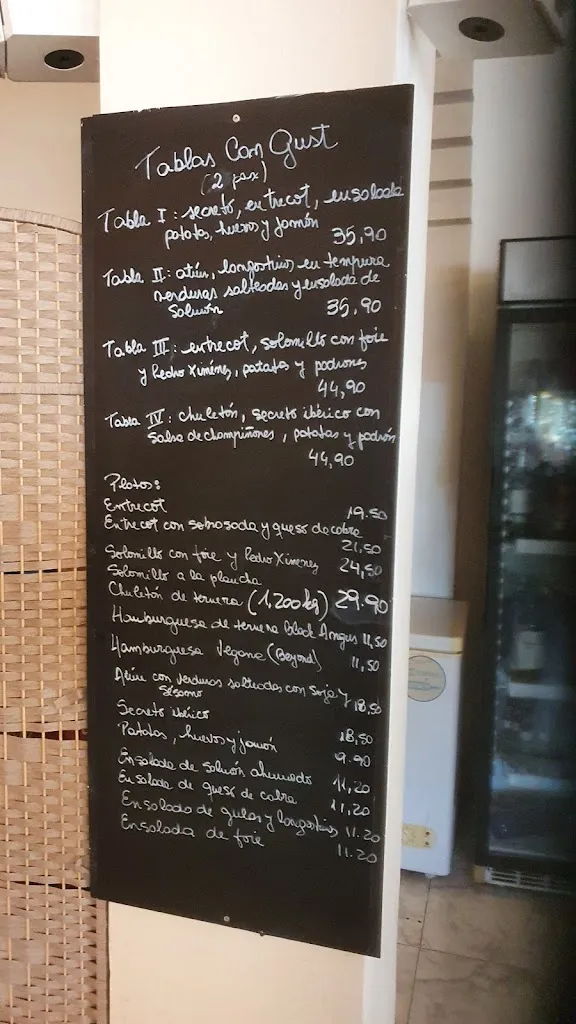 Tablas Con Gust
(2 pax)
Tabla I: secreto, entrecot, ensalada
patatas, huevos y jamón 35,90
Tabla II: atún, langostinos en tempura
verduras salteadas y ensalada de
salmón 35,90
Tabla III: entrecot, solomillo con foie
y Pedro Ximénez, patatas y padrones
44,90
Tabla IV: chuletón, secreto ibérico con
salsa de champiñones, patatas y padrón
44,90
Platos:
Entrecot 19.50
Entrecot con sobrasada y queso de cabra 21,50
Solomillo con foie y Pedro Ximenez 24,50
Solomillo a la plancha
Chuletón de ternera (1,200kg) 29.90
Hamburguesa de ternera black Angus 11,50
Hamburguesa Vegana (Beyond) 11,50
Atún con verduras salteadas con soja y
sésamo 18,50
Secreto ibérico 18,50
Patatas, huevos y jamón 9.90
Ensalada de salmón ahumado 11,20
Ensalada de queso de cabra 11,20
Ensalada de gulas y langostinos 11.20
Ensalada de foie 11.20